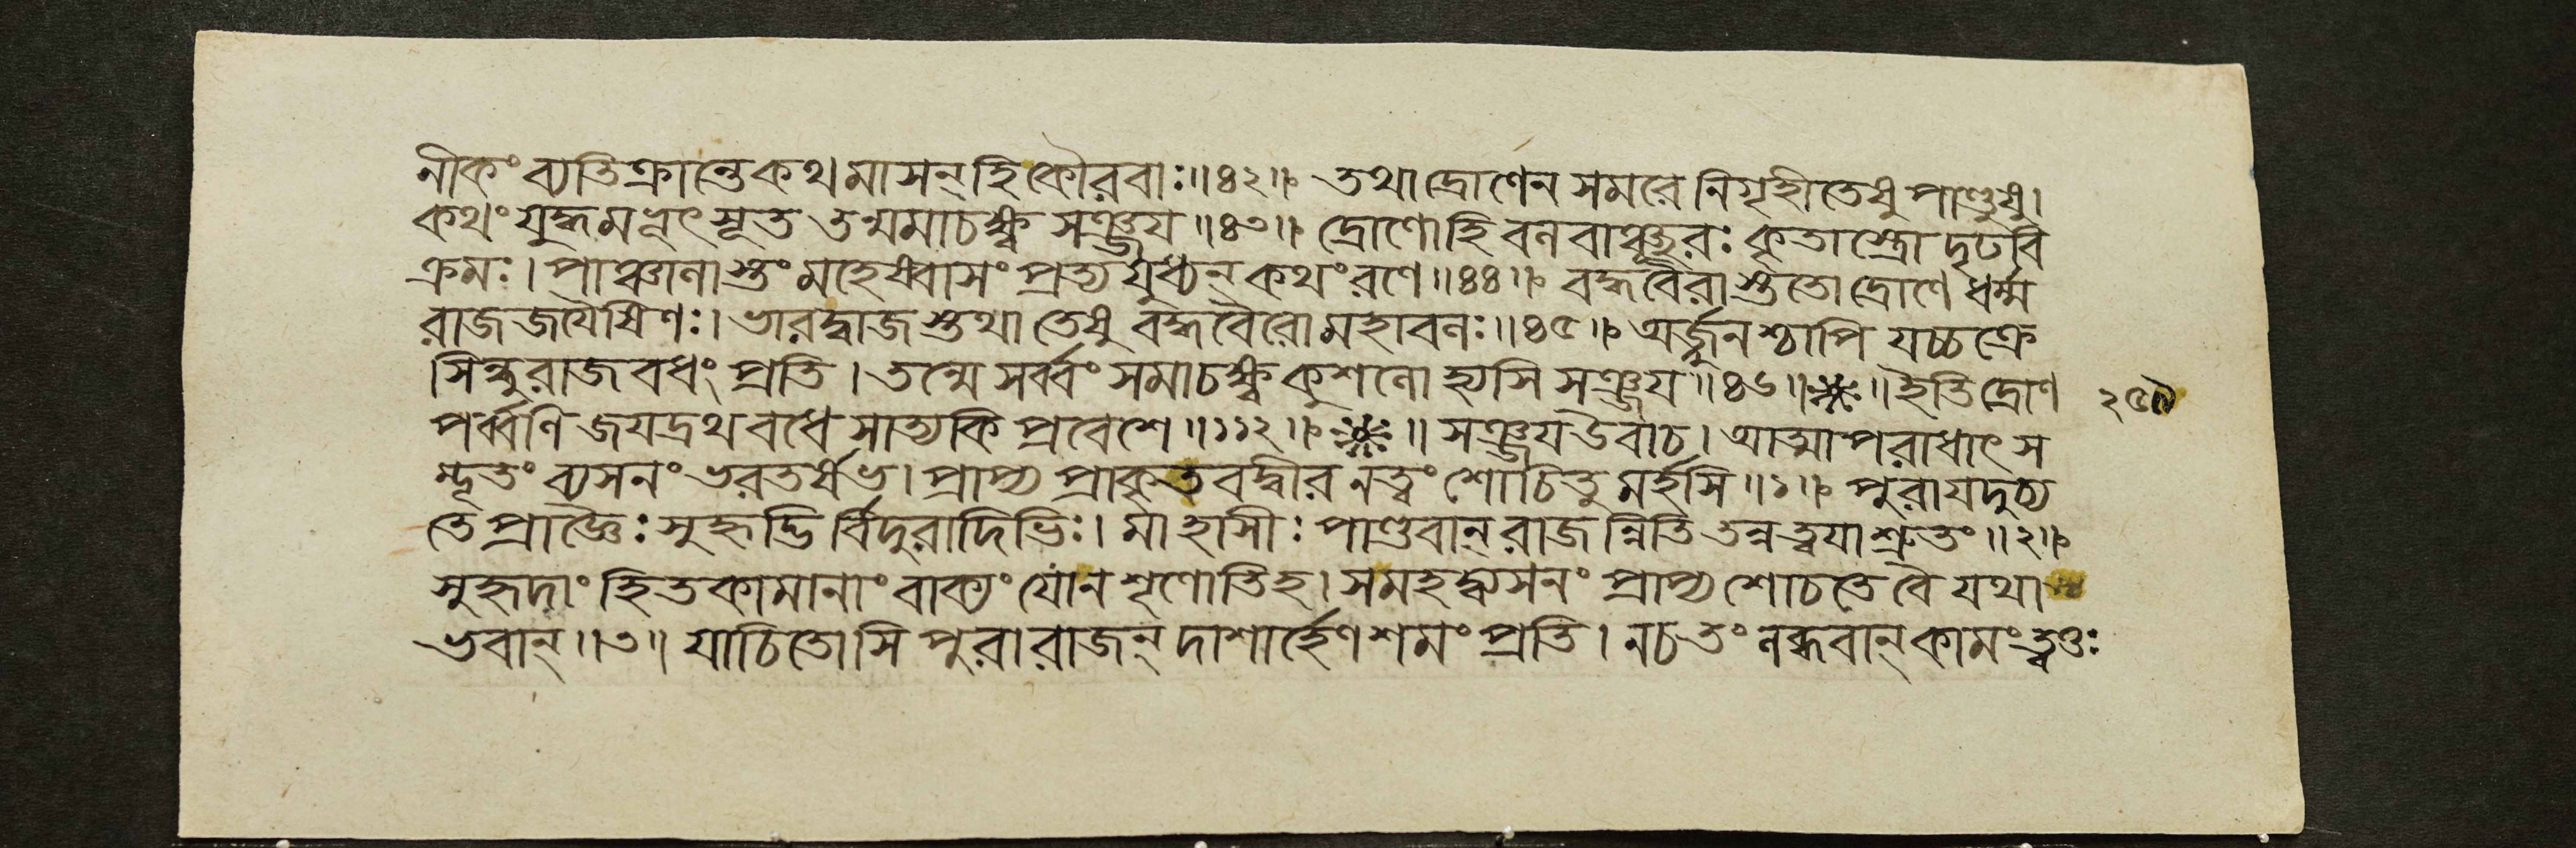 নীকং ব্যতিক্রান্তে কথমাসন্ হি কৌরবাঃ ॥ ৪২ ॥ তথা দ্রোণেন সমরে নিগৃহীতেষু পাণ্ডুষু ।
কথং যুদ্ধমভূৎ সূত তন্মমাচক্ষ্ব সঞ্জয় ॥ ৪৩ ॥ দ্রোণো হি বলবাঞ্ছূরঃ কৃতাস্ত্রো দৃঢবি
ক্রমঃ । পাঞ্চালাস্তং মহেষ্বাসং প্রত্যযুধ্যন্ কথং রণে ॥ ৪৪ ॥ বদ্ধবৈরাস্ততো দ্রোণে ধর্ম্ম
রাজজয়ৈষিণঃ । ভারদ্বাজস্তথা তেষু বদ্ধবৈরো মহাবলঃ ॥ ৪৫ ॥ অর্জ্জুনশ্চাপি যচ্চক্রে
সিন্ধুরাজবধং প্রতি । তন্মে সর্ব্বং সমাচক্ষ্ব কুশলো হ্যসি সঞ্জয় ॥ ৪৬ ॥ ॥ ইতি দ্রোণ ২৫৯
পর্ব্বণি জয়দ্রথবধে সাত্যকিপ্রবেশে ॥ ১১২ ॥ ॥ সঞ্জয় উবাচ । আত্মাপরাধাৎ স
ম্ভূতং ব্যসনং ভরতর্ষভ । প্রাপ্য প্রাকৃতবদ্বীর ন ত্বং শোচিতুমর্হসি ॥ ১ ॥ পুরা যদুচ্য
তে প্রাজ্ঞৈঃ সুহৃদ্ভির্বিদুরাদিভিঃ । মা হাসীঃ পাণ্ডবান্ রাজন্নিতি তন্ন ত্বয়া শ্রুতং ॥ ২ ॥
সুহৃদাং হিতকামানাং বাক্যং যো ন শৃণোতি হ । স মহদ্ব্যসনং প্রাপ্য শোচতে বৈ যথা
ভবান্ ॥ ৩ ॥ যাচিতোসি পুরা রাজন্ দাশার্হেণ শমং প্রতি । ন চ তং লব্ধবান্ কামং ত্বত্তঃ